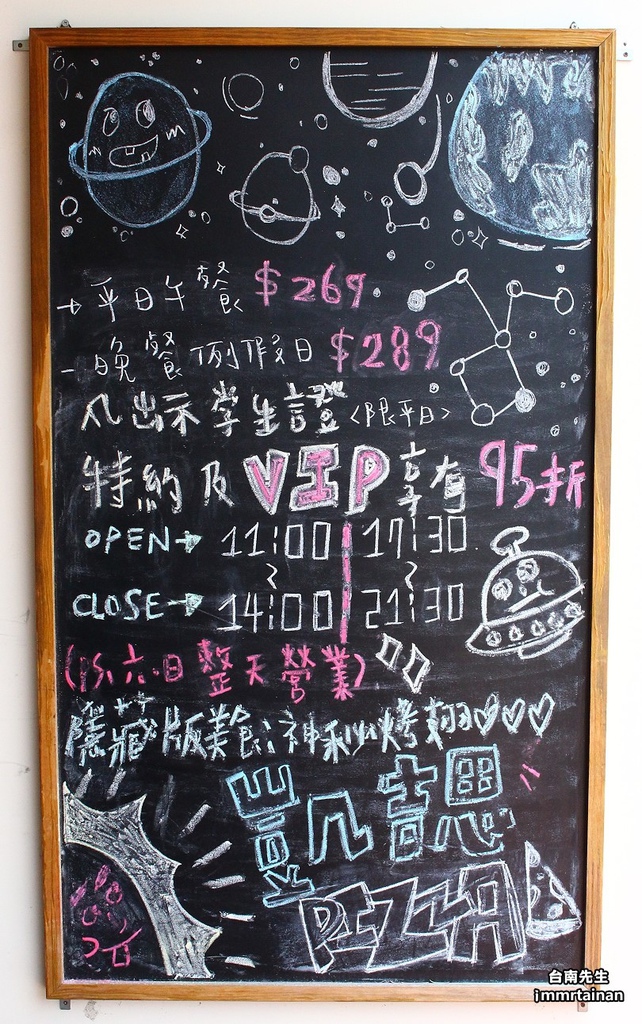 → 平日午餐 $269
- 晚餐 例假日 $289
凡出示學生證<限平日>
特約及VIP享有95折
OPEN→ 11:00 17:30
~ ~
CLOSE→ 14:00 21:30
(PS.六.日 整天營業)
隱藏版美食:神秘烤翅♡♡♡
凱恩
PIZZA
台南先生
immrtainan